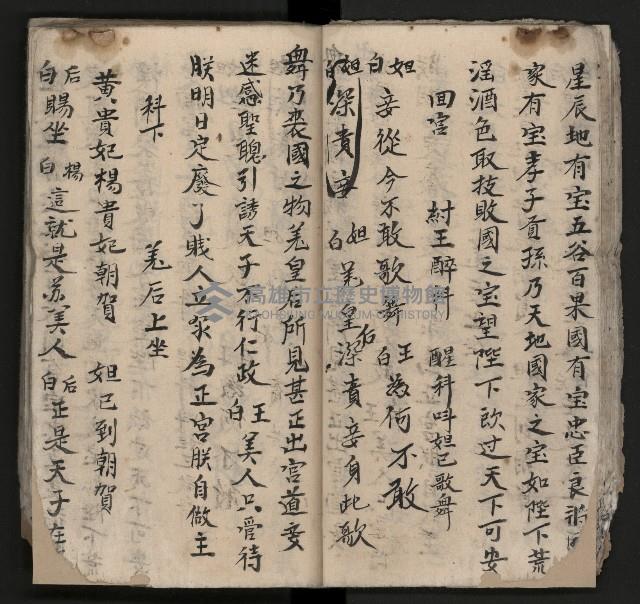 星辰地有宝五谷百果國有宝忠臣良
家有宝孝子賢孫乃天地國家之宝如陛下荒
淫酒色取技敗國之宝望陛下改过天下可安
回宮 紂王醉科 醒科叫妲己歌舞
妲白妾從今不敢歌舞王白為何不敢
妲白深責妾妲白羌皇后深責妾身此歌
舞乃喪國之物羌皇后所見甚正出宮道妾
迷惑聖聰引誘天子不行仁政王白美人只管待
朕明日定廢了賎人立家為正宮朕自做主
科下 羌后上坐
黃貴妃楊貴妃朝賀 妲己到朝賀
后白賜坐楊白這就是苏美人后白正是天子在
高雄市立歷史博物館
KAOHSIUNG MUSEUM OF HISTORY